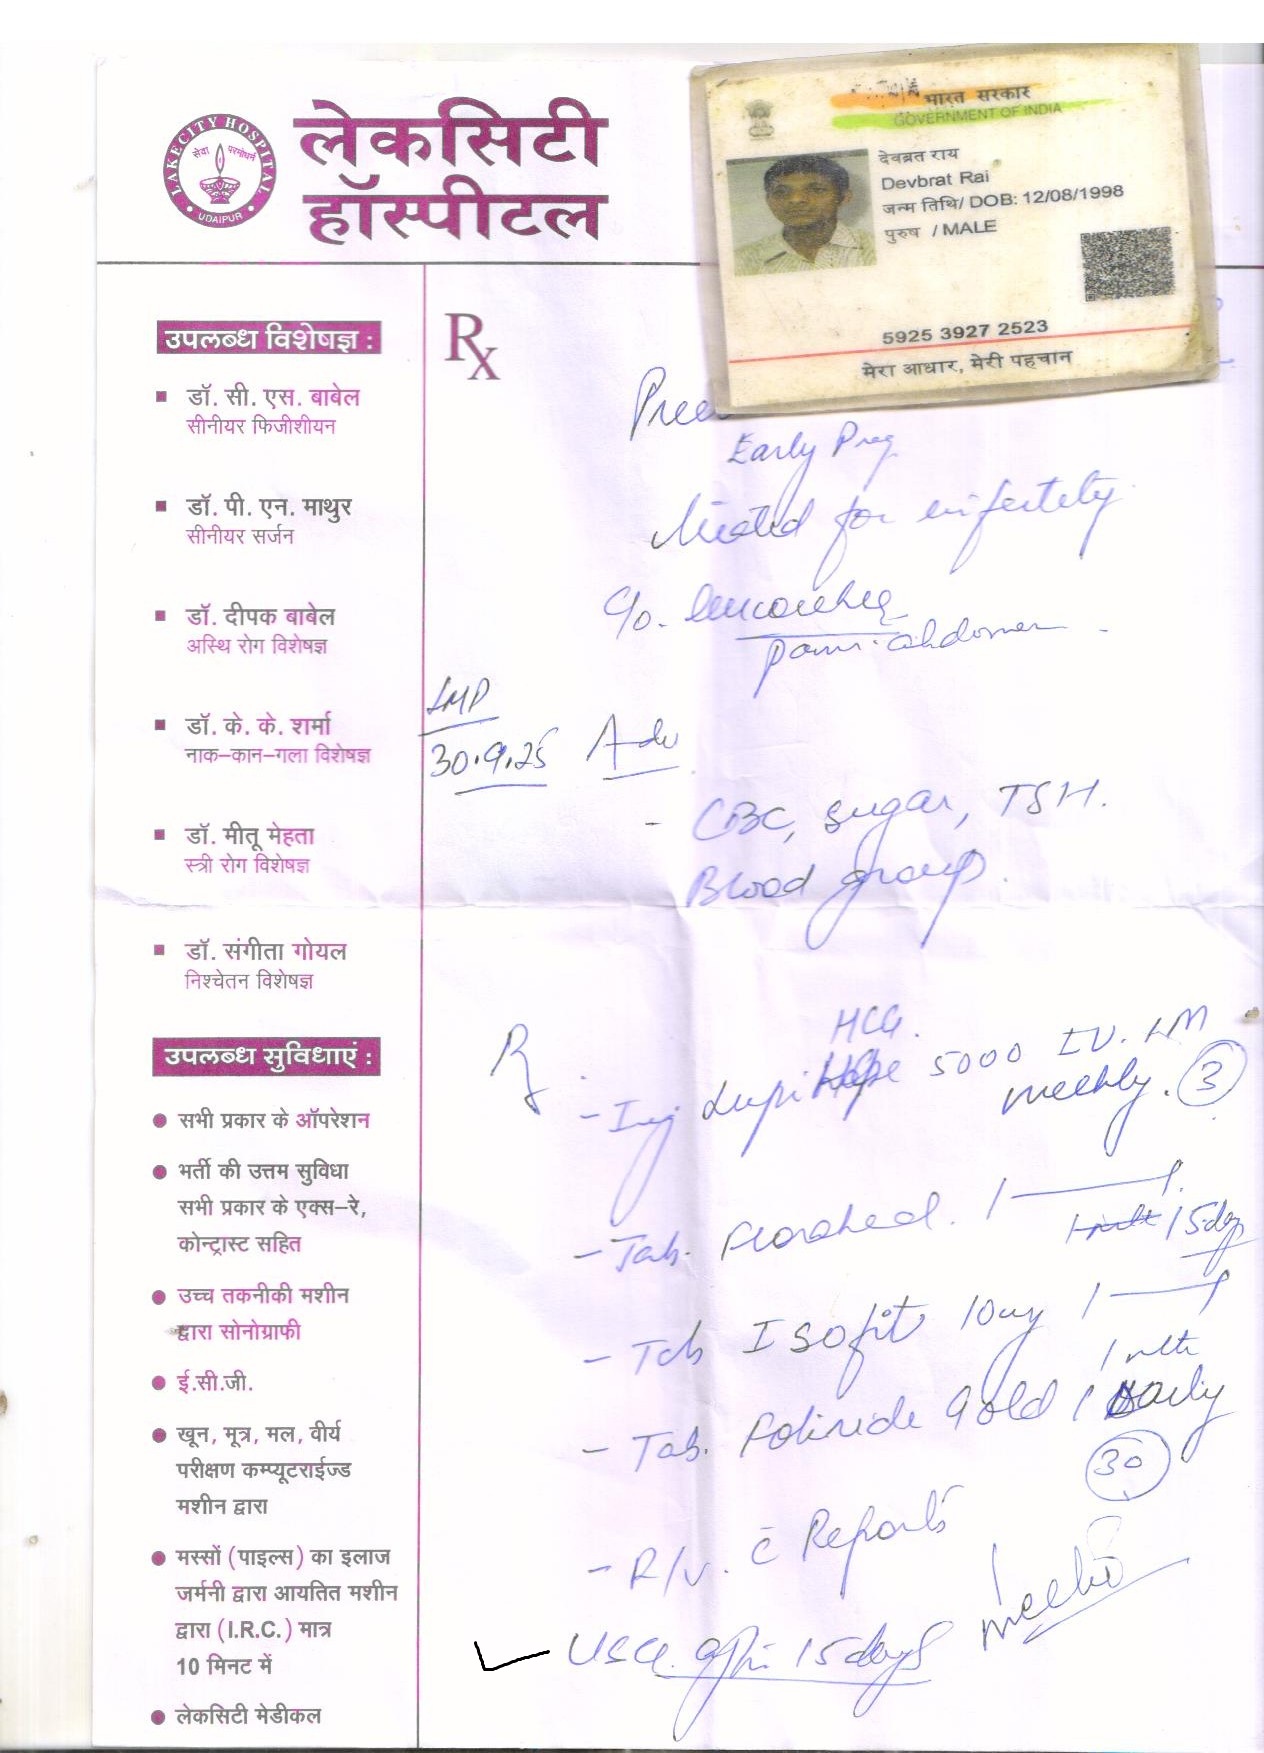 LAKECITY HOSPITAL
सेवा परमोधर्म
UDAIPUR
लेकसिटी
हॉस्पीटल
भारत सरकार
GOVERNMENT OF INDIA
देवब्रत राय
Devbrat Rai
जन्म तिथि/ DOB: 12/08/1998
पुरुष / MALE
5925 3927 2523
मेरा आधार, मेरी पहचान
उपलब्ध विशेषज्ञ :
डॉ. सी. एस. बाबेल
सीनीयर फिजीशीयन
डॉ. पी. एन. माथुर
सीनीयर सर्जन
डॉ. दीपक बाबेल
अस्थि रोग विशेषज्ञ
डॉ. के. के. शर्मा
नाक–कान–गला विशेषज्ञ
डॉ. मीतू मेहता
स्त्री रोग विशेषज्ञ
डॉ. संगीता गोयल
निश्चेतन विशेषज्ञ
उपलब्ध सुविधाएं :
सभी प्रकार के ऑपरेशन
भर्ती की उत्तम सुविधा
सभी प्रकार के एक्स–रे,
कोन्ट्रास्ट सहित
उच्च तकनीकी मशीन
द्वारा सोनोग्राफी
ई.सी.जी.
खून, मूत्र, मल, वीर्य
परीक्षण कम्प्यूटराईज्ड
मशीन द्वारा
मस्सों (पाइल्स) का इलाज
जर्मनी द्वारा आयतित मशीन
द्वारा (I.R.C.) मात्र
10 मिनट में
लेकसिटी मेडीकल
Rx
Early Preg
treated for infertility
c/o. leucorrhea
pain abdomen
LMP
30.9.25 Adv
- CBC, Sugar, TSH.
Blood group.
Rx
HCG.
- Inj Lupi 5000 IU. IM
weekly. 3
- Tab. 1
15 days
- Tab Isofit 10mg 1
1 mth
- Tab. Gold 1 daily
30
- R/v. c̄ Reports
USG. after 15 days